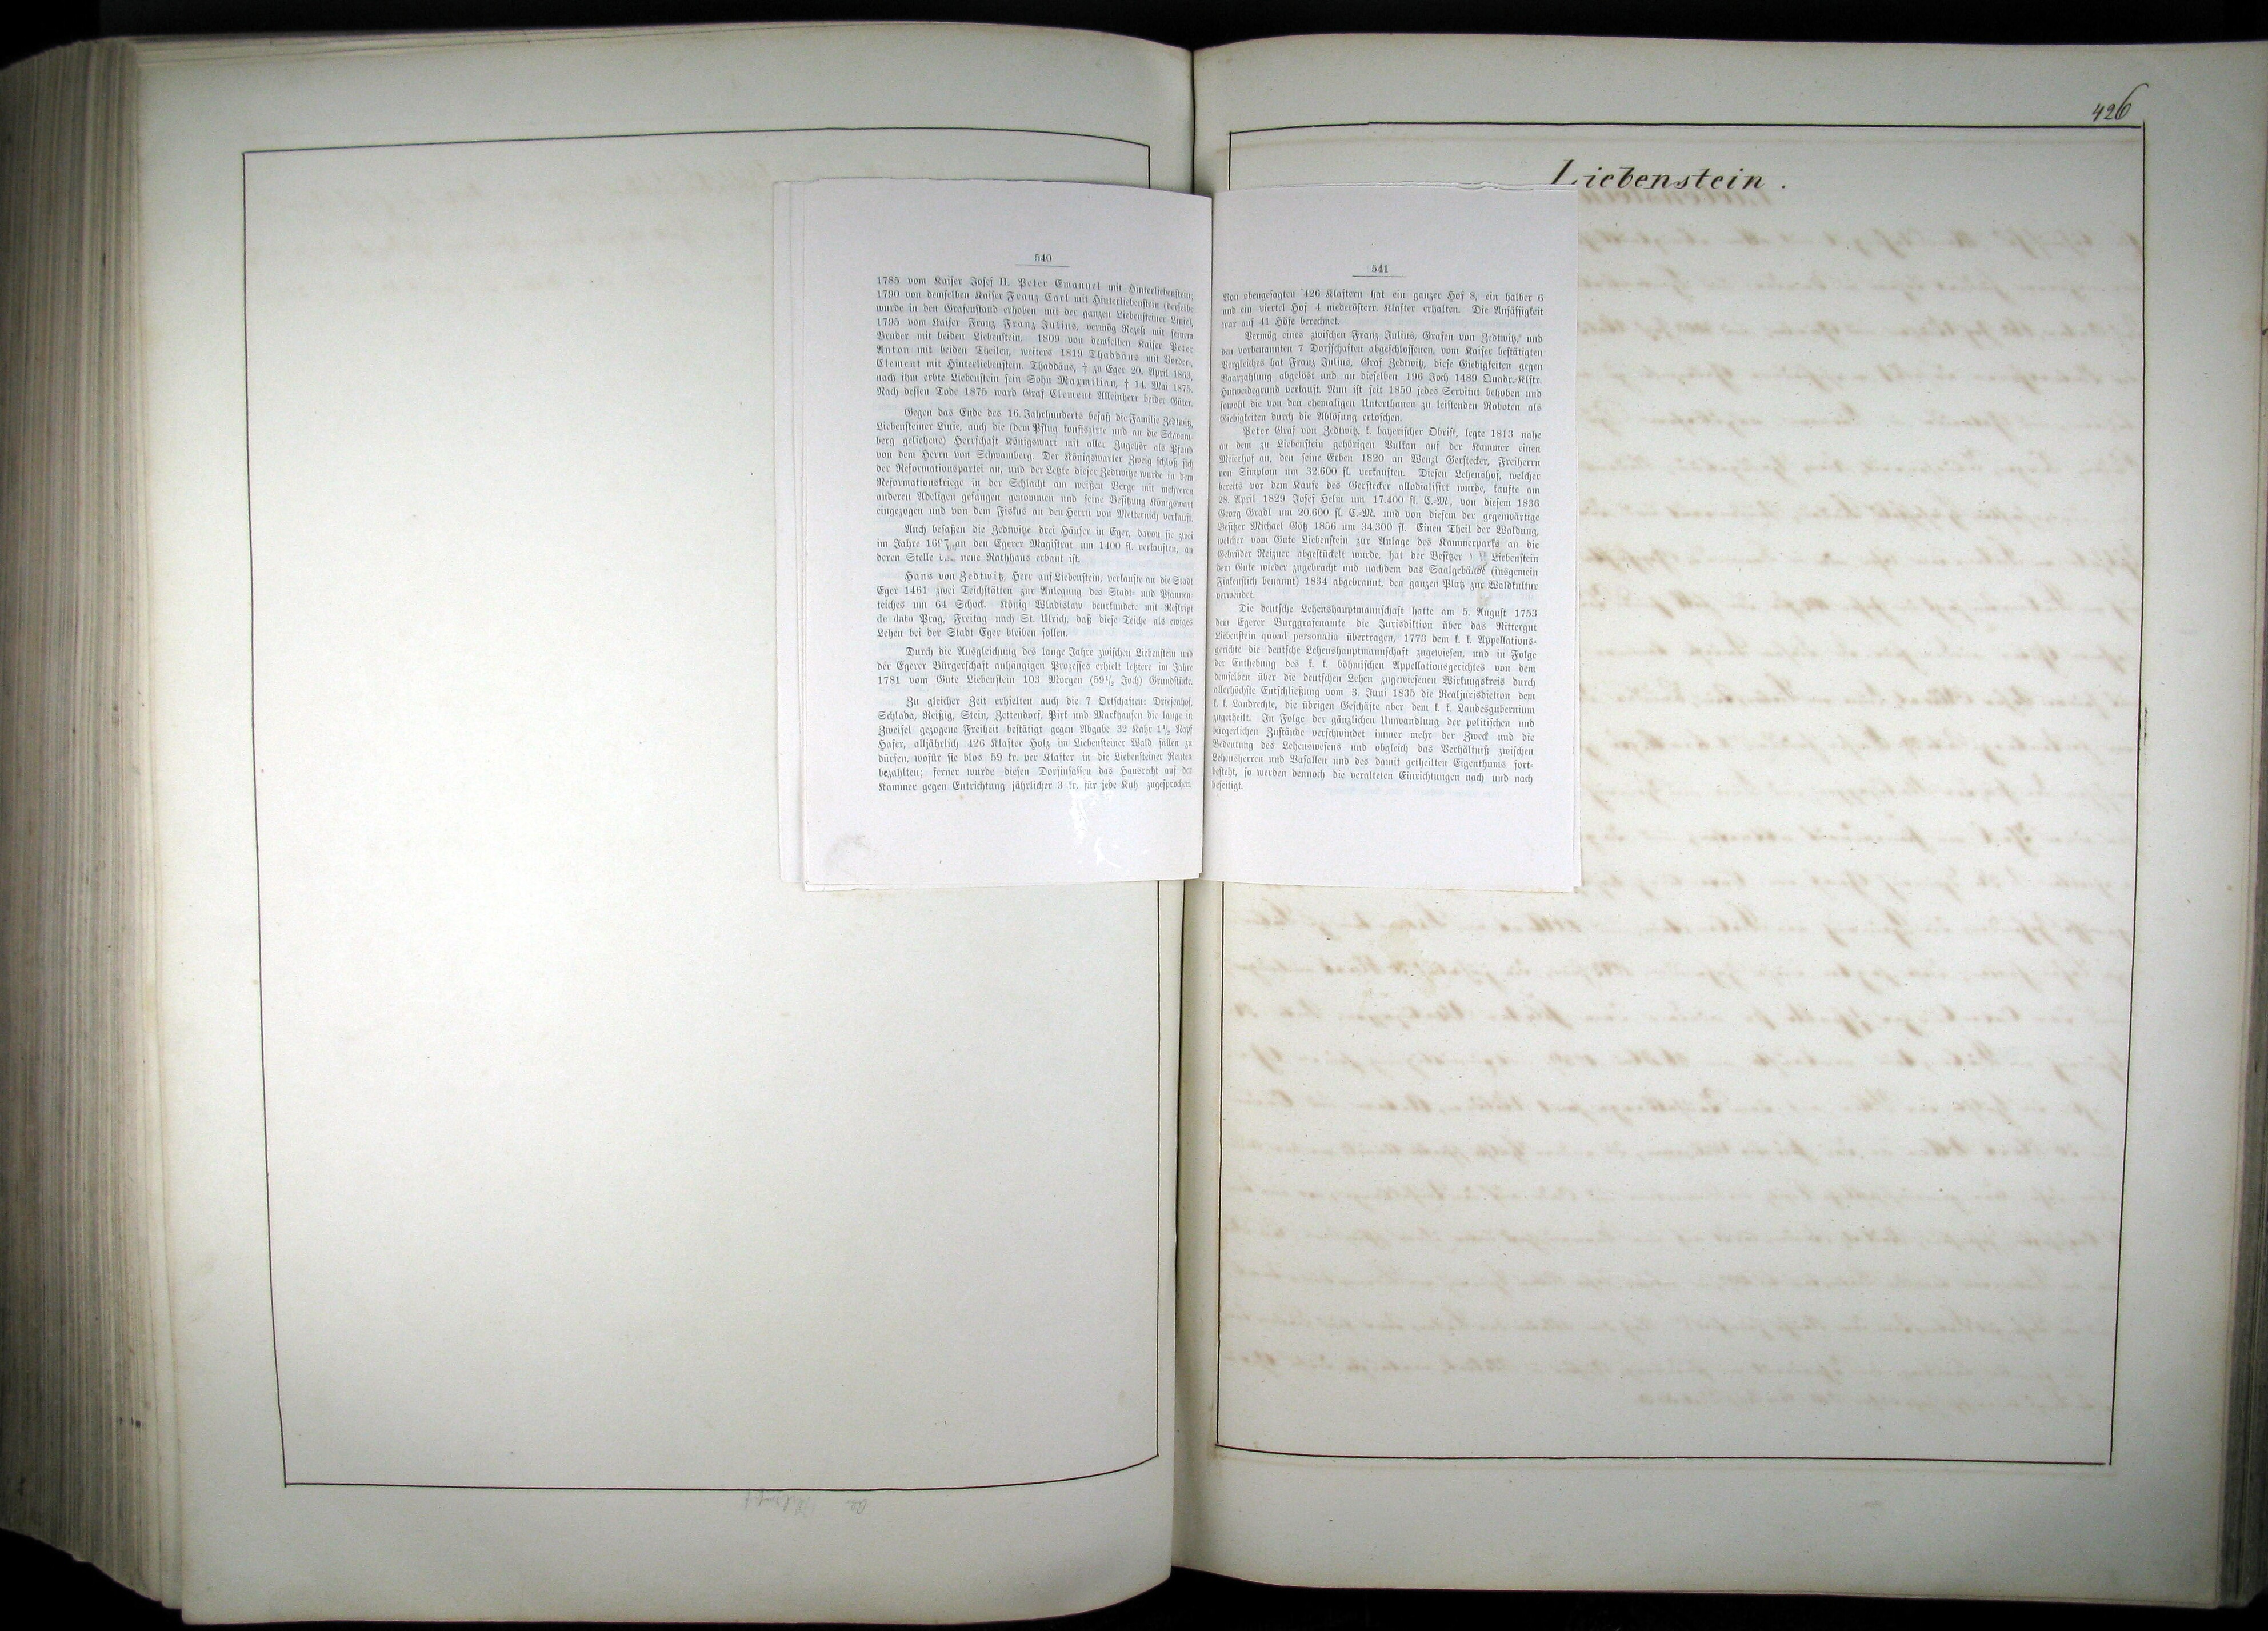 426
Liebenstein.
540
1785 vom Kaiser Josef II. Peter Emanuel mit Hinterliebenstein;
1790 von demselben Kaiser Franz Carl mit Hinterliebenstein (derselbe
wurde in den Grafenstand erhoben mit der ganzen Liebensteiner Linie),
1795 vom Kaiser Franz Franz Julius, vermög Rezeß mit seinem
Bruder mit beiden Liebenstein. 1809 von demselben Kaiser Peter
Anton mit beiden Theilen, weiters 1819 Thaddäus mit Vorder-,
Clement mit Hinterliebenstein. Thaddäus, † zu Eger 20. April 1863,
nach ihm erbte Liebenstein sein Sohn Maxmilian, † 14. Mai 1875.
Nach dessen Tode 1875 ward Graf Clement Alleinherr beider Güter.
Gegen das Ende des 16. Jahrhunderts besaß die Familie Zedtwitz,
Liebensteiner Linie, auch die (dem Pflug konfiszirte und an die Schwam-
berg geliehene) Herrschaft Königswart mit aller Zugehör als Pfand
von dem Herrn von Schwamberg. Der Königswarter Zweig schloß sich
der Reformationspartei an, und der Letzte dieser Zedtwitze wurde in dem
Reformationskriege in der Schlacht am weißen Berge mit mehreren
anderen Adeligen gefangen genommen und seine Besitzung Königswart
eingezogen und von dem Fiskus an den Herrn von Metternich verkauft.
Auch besaßen die Zedtwitze drei Häuser in Eger, davon sie zwei
im Jahre an den Egerer Magistrat um 1400 fl. verkauften, an
deren Stelle neue Rathhaus erbaut ist.
Hans von Zedtwitz, Herr auf Liebenstein, verkaufte an die Stadt
Eger 1461 zwei Teichstätten zur Anlegung des Stadt- und Pfannen-
teiches um 64 Schock. König Wladislaw beurkundete mit Reskript
do dato Prag, Freitag nach St. Ulrich, daß diese Teiche als ewiges
Lehen bei der Stadt Eger bleiben sollen.
Durch die Ausgleichung des lange Jahre zwischen Liebenstein und
der Egerer Bürgerschaft anhängigen Prozesses erhielt letztere im Jahre
1781 vom Gute Liebenstein 103 Morgen (59½ Joch) Grundstücke.
Zu gleicher Zeit erhielten auch die 7 Ortschaften: Driesenhof,
Schlada, Reißig, Stein, Zettendorf, Pirk und Markhausen die lange in
Zweifel gezogene Freiheit bestätigt gegen Abgabe 32 Kahr 1½ Napf
Hafer, alljährlich 426 Klafter Holz im Liebensteiner Wald fällen zu
dürfen, wofür sie blos 59 kr. per Klafter in die Liebensteiner Renten
bezahlten; ferner wurde diesen Dorfinsassen das Hausrecht auf der
Kammer gegen Entrichtung jährlicher 3 kr. für jede Kuh zugesprochen.
541
Von obengesagten 426 Klaftern hat ein ganzer Hof 8, ein halber 6
und ein viertel Hof 4 niederösterr. Klafter erhalten. Die Ansässigkeit
war auf 41 Höfe berechnet.
Vermög eines zwischen Franz Julius, Grafen von Zedtwitz, und
den vorbenannten 7 Dorfschaften abgeschlossenen, vom Kaiser bestätigten
Vergleiches hat Franz Julius, Graf Zedtwitz, diese Giebigkeiten gegen
Baarzahlung abgelöst und an dieselben 196 Joch 1489 Quadr.-Klftr.
Hutweidegrund verkauft. Nun ist seit 1850 jedes Servitut behoben und
sowohl die von den ehemaligen Unterthanen zu leistenden Roboten als
Giebigkeiten durch die Ablösung erloschen.
Peter Graf von Zedtwitz, k. bayerischer Obrist, legte 1813 nahe
an dem zu Liebenstein gehörigen Vulkan auf der Kammer einen
Meierhof an, den seine Erben 1820 an Wenzl Gerstecker, Freiherrn
von Simplom um 32.600 fl. verkauften. Diesen Lehenshof, welcher
bereits vor dem Kaufe des Gerstecker allodialisirt wurde, kaufte am
28. April 1829 Josef Helm um 17.400 fl. C.-M., von diesem 1836
Georg Gradl um 20.600 fl. C.-M. und von diesem der gegenwärtige
Besitzer Michael Götz 1856 um 34.300 fl. Einen Theil der Waldung,
welcher vom Gute Liebenstein zur Anlage des Kammerparks an die
Gebrüder Reizner abgestückelt wurde, hat der Besitzer Liebenstein
dem Gute wieder zugebracht und nachdem das Saalgebäude (insgemein
Finkenstich benannt) 1834 abgebrannt, den ganzen Platz zur Waldkultur
verwendet.
Die deutsche Lehenshauptmannschaft hatte am 5. August 1753
dem Egerer Burggrafenamte die Jurisdiktion über das Rittergut
Liebenstein quoad personalia übertragen, 1773 dem k. k. Appellations-
gerichte die deutsche Lehenshauptmannschaft zugewiesen, und in Folge
der Enthebung des k. k. böhmischen Appellationsgerichtes von dem
demselben über die deutschen Lehen zugewiesenen Wirkungskreis durch
allerhöchste Entschließung vom 3. Juni 1835 die Realjurisdiction dem
k. k. Landrechte, die übrigen Geschäfte aber dem k. k. Landesgubernium
zugetheilt. In Folge der gänzlichen Umwandlung der politischen und
bürgerlichen Zustände verschwindet immer mehr der Zweck und die
Bedeutung des Lehenswesens und obgleich das Verhältniß zwischen
Lehensherren und Vasallen und des damit getheilten Eigenthums fort-
besteht, so werden dennoch die veralteten Einrichtungen nach und nach
beseitigt.